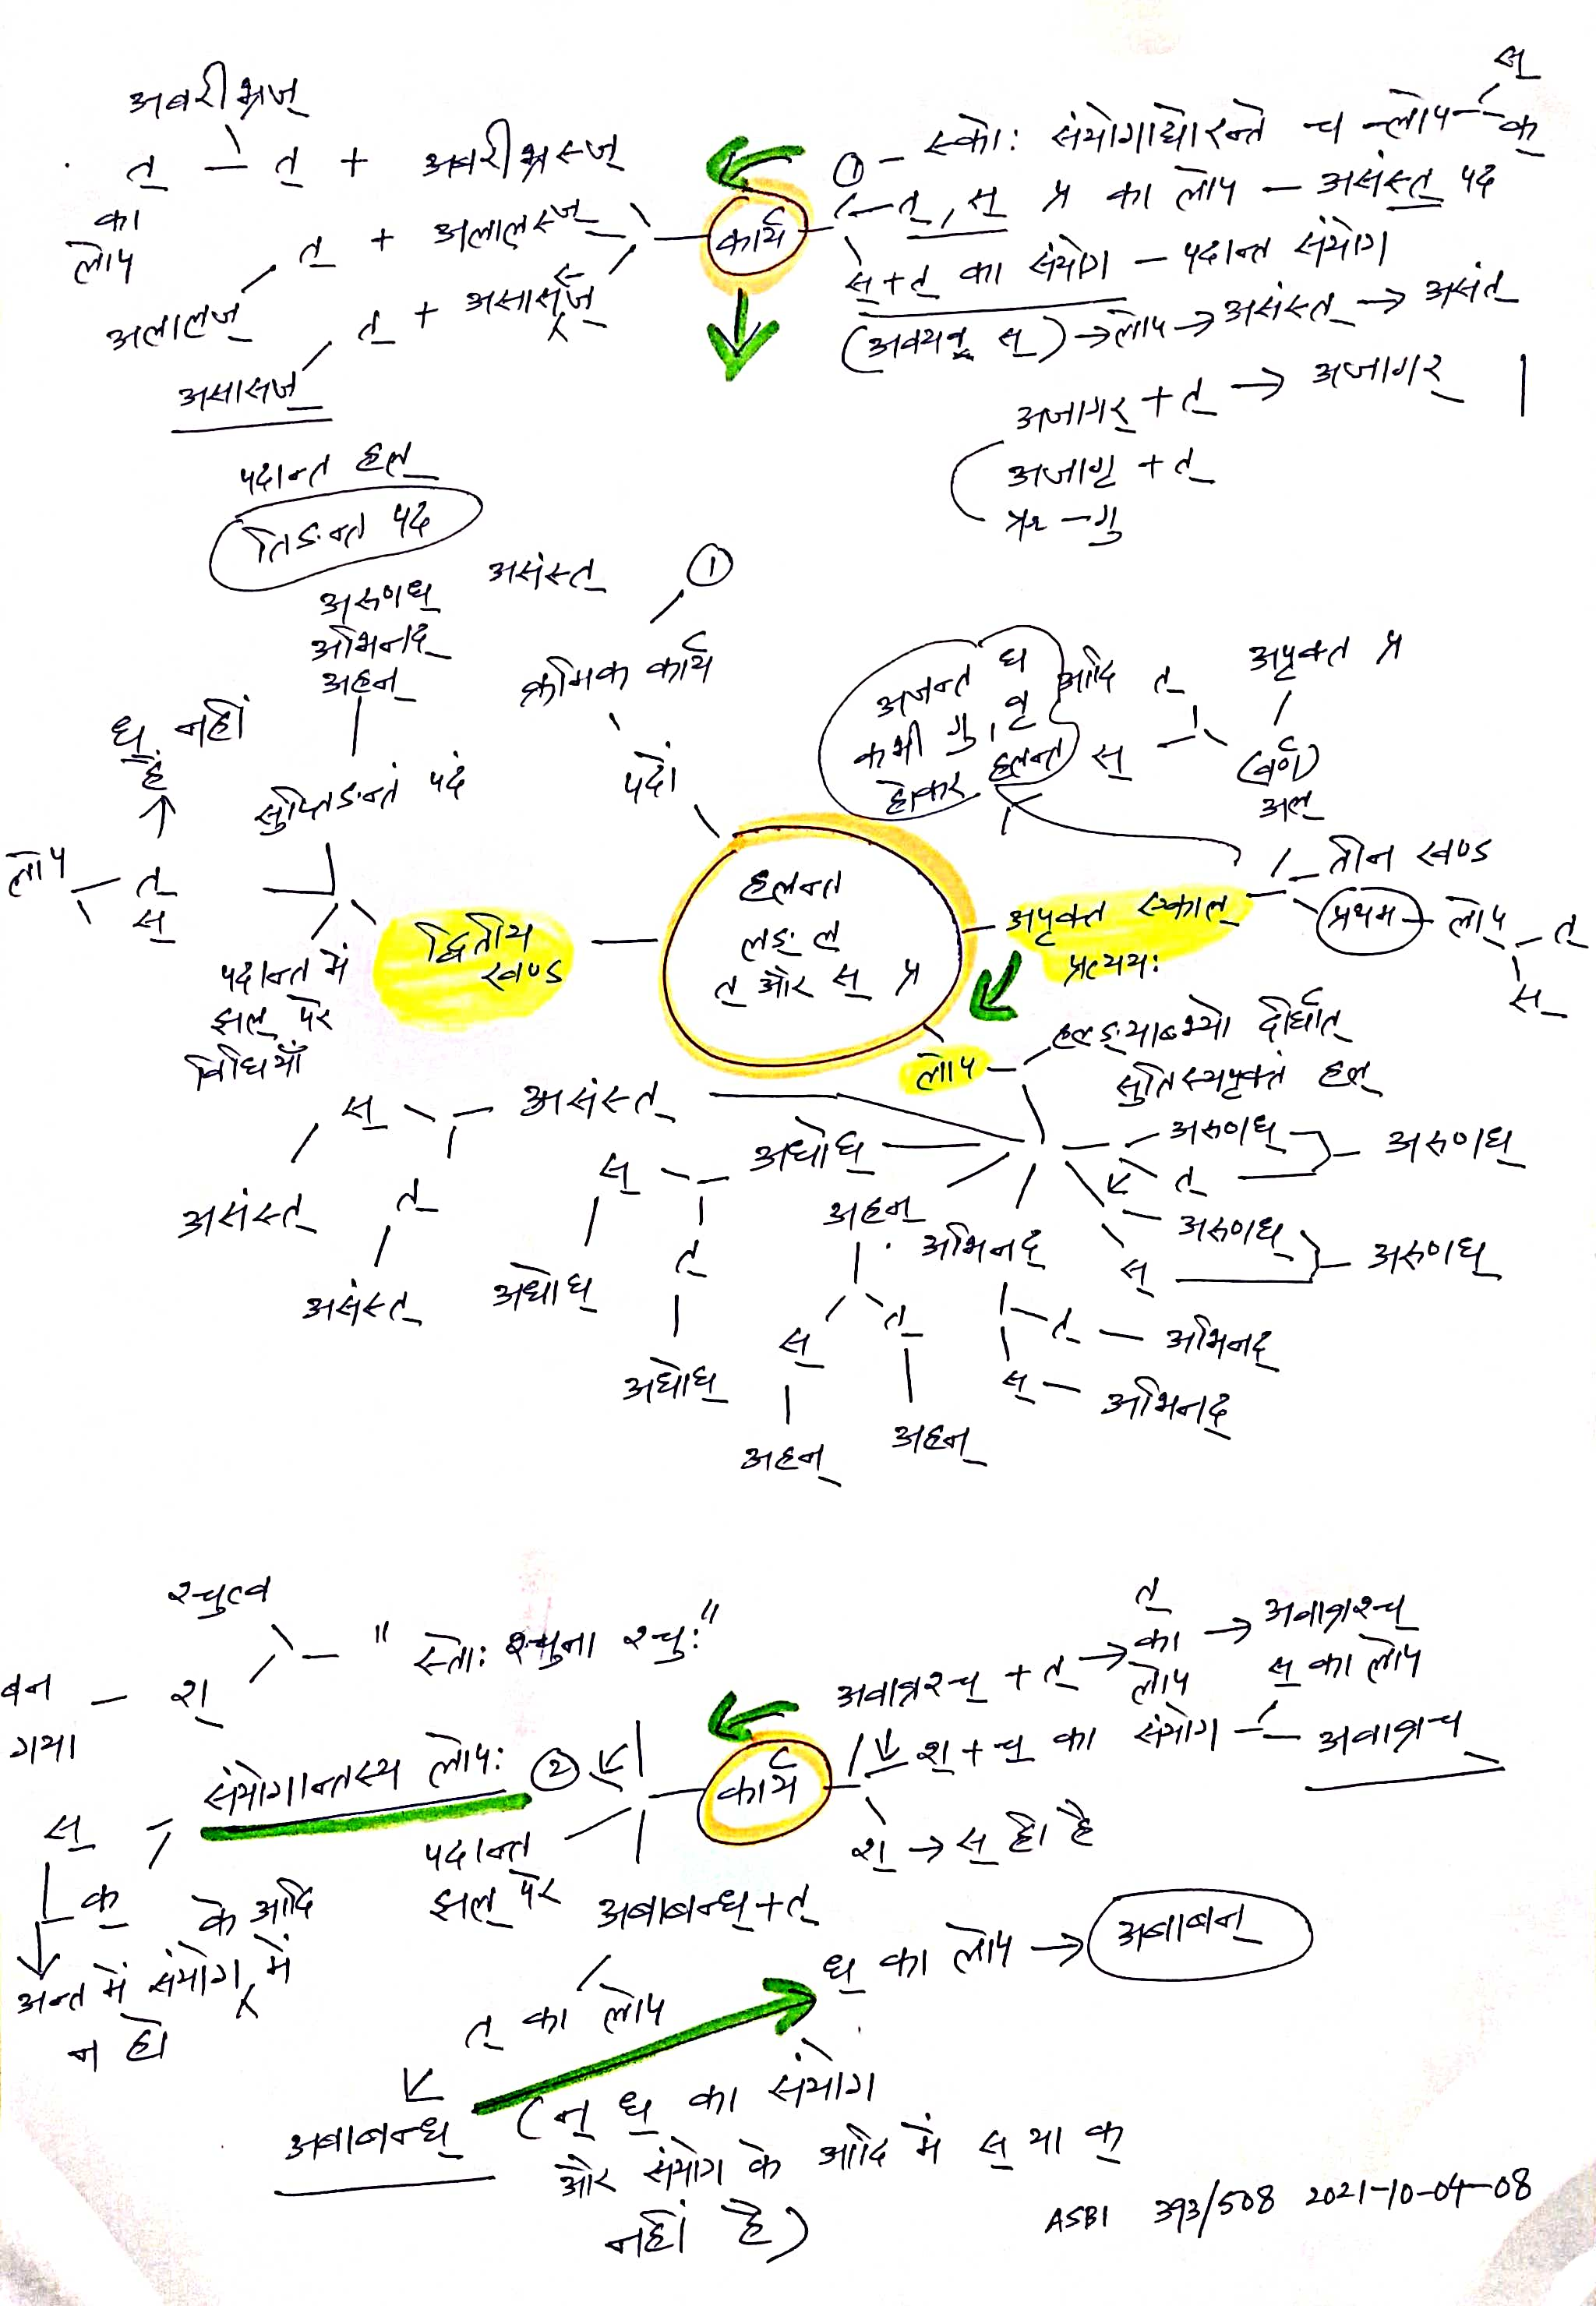 अबरीभ्रज्
त् — त् + अबरीभ्रस्ज्
का
लोप
त् + अलालस्ज्
अलालज्
त् + असासस्ज्
असासज्
कार्य
① — स्कोः संयोगाद्योरन्ते च — लोप — स्
क्
त्, स् प्र का लोप — असंस्त् पद
स् + त् का संयोग — पदान्त संयोग
(अवयव स्) → लोप → असंस्त् → असंत्
अजागर् + त् → अजागर् |
अजागृ + त्
ऋर — गु
पदान्त हल्
तिङन्त पद
असंस्त्
अरुणध्
अभिनद्
अहन्
①
क्रमिक कार्य
पदों
सुप्तिङन्तं पद
ध् नहीं
है
लोप — त्
स्
पदान्त में
झल् परे
विधियाँ
द्वितीय
खण्ड
हलन्त
लङ् ल्
त् और स् प्र
अजन्त ध
कभी गु, वृ
होकर हलन्त
आदि त्
स्
अपृक्त प्र
(वर्ण)
अल्
अपृक्त एकाल्
प्रत्ययः
तीन खण्ड
प्रथम — लोप — त्
स्
लोप — हल्ङ्याब्भ्यो दीर्घात्
सुतिस्यपृक्तं हल्
स् — असंस्त्
असंस्त्
त्
असंस्त्
स् — अधोध्
अधोध्
त्
अधोध्
अहन्
स्
त्
अहन्
अहन्
अभिनद्
त् — अभिनद्
स् — अभिनद्
अरुणध् — अरुणध्
त्
अरुणध् — अरुणध्
स्
श्चुत्व
"स्तोः श्चुना श्चुः"
बन — श्
गया
संयोगान्तस्य लोपः ②
स्
क्
के आदि
अन्त में संयोग में
न हो
पदान्त
झल् परे
कार्य
अवाव्रश्च् + त् → त् का लोप → अवाव्रश्च्
श् + च् का संयोग — स् का लोप
अवाव्रच्
श् → स् ही है
अबाबन्ध् + त्
त् का लोप
अबाबन्ध्
ध् का लोप → अबाबन्
(न् ध् का संयोग
और संयोग के आदि में स् या क्
नहीं है)
ASBI 393/508 2021-10-04-08